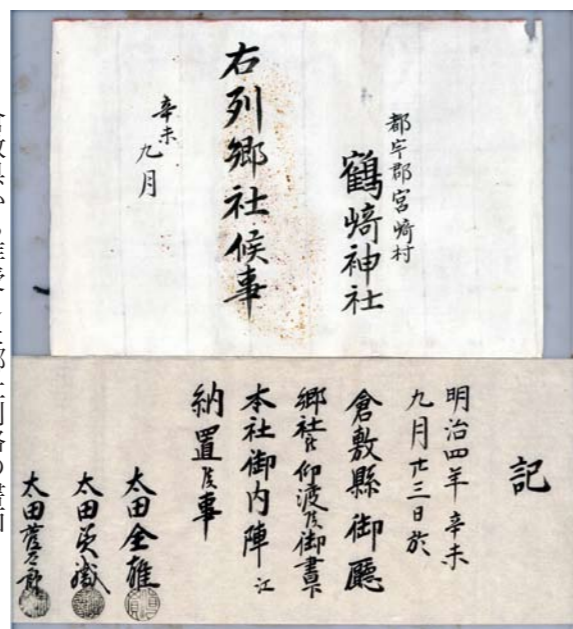 都宇郡宮﨑村
鶴﨑神社
右列郷社候事
辛未
九月
記
明治四年辛未
九月廿三日於
倉敷縣御廳
郷社仰渡候御書下
本社御内陣江
納置候事
太田全雅
太田
太田